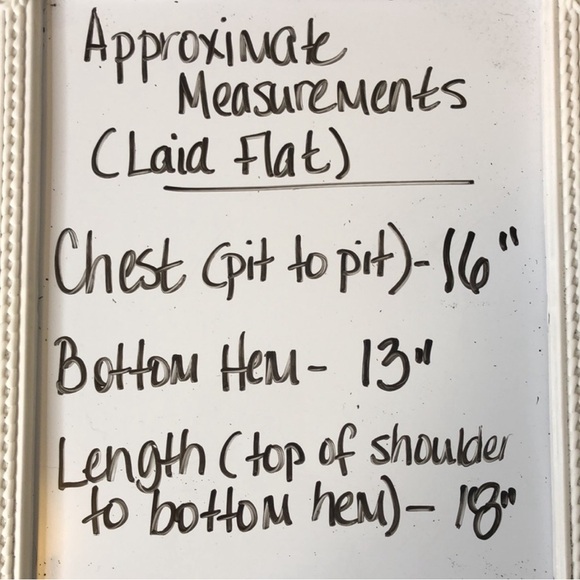 Approximate
Measurements
(Laid Flat)
Chest (pit to pit)- 16"
Bottom Hem- 13"
Length (top of shoulder
to bottom hem)- 18"